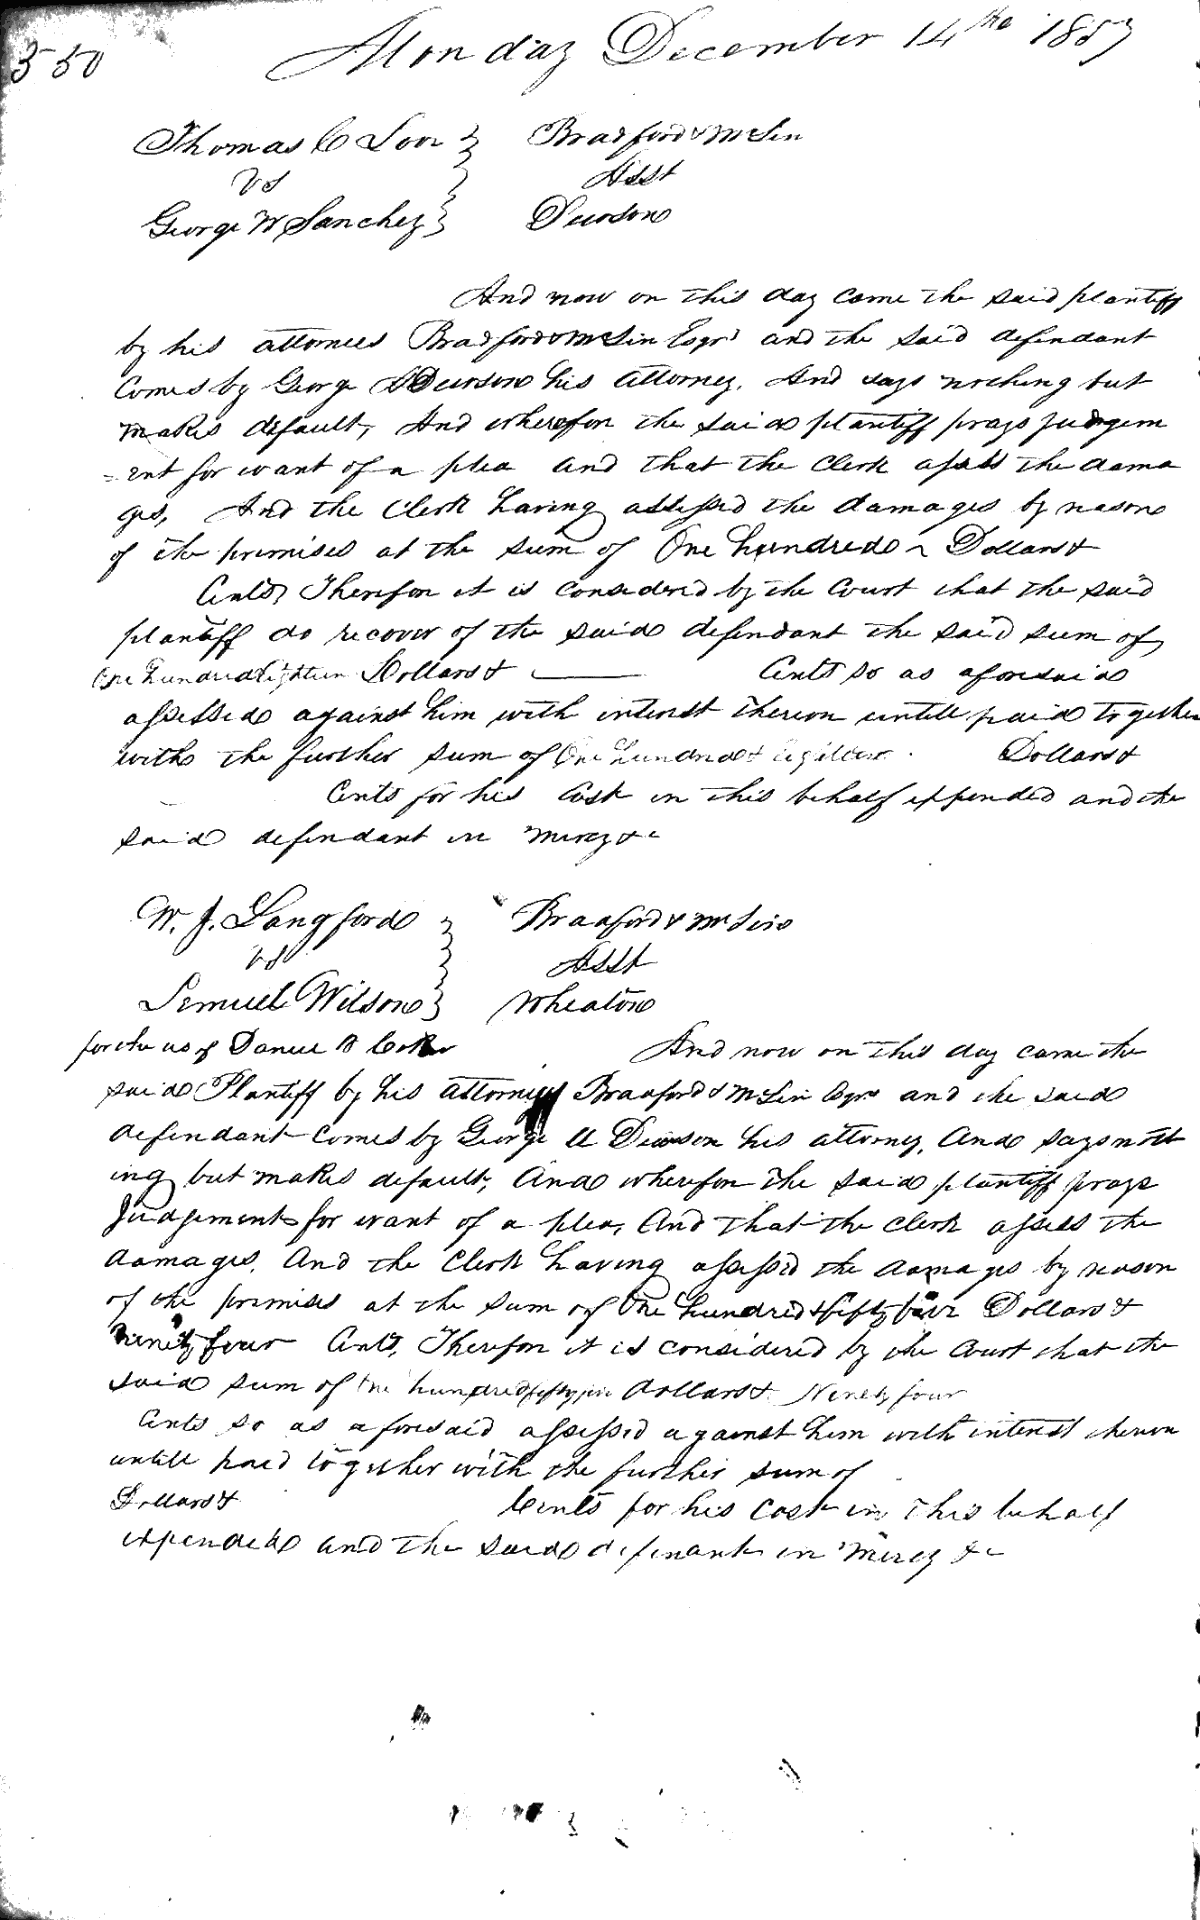 350 Monday December 14th 1857
Thomas C Loor } Bradford & McLin
vs } Asst
George W Sanchez } Dawson
And now on this day came the said plantiff
by his attornees Bradford & McLin Esqrs and the said defendant
Comes by George Dawson his attorney. And says nothing but
makes default, And wherefore the said plantiff prays judgem
=ent for want of a plea and that the Clerk assess the dama
ges, And the Clerk having assessed the damages by reason
of the premises at the sum of One hundred ~ Dollars &
Cents, Therefore it is considered by the Court that the said
plantiff do recover of the said defendant the said sum of
One hundred Eighteen Dollars & —— Cents so as aforesaid
assessed against him with interest thereon untill paid together
with the further sum of One hundred & Eighteen Dollars &
Cents for his Cost in this behalf expended and the
said defendant in mercy &c
W. J. Langford } Bradford & McLin
vs } Asst
Lemuel Wilson } Wheaton
for the us of Daniel B
And now on this day came the
said Plantiff by his attorneys Bradford & McLin Esqrs and the said
defendant comes by George A Dawson his attorney, And says noth
ing but makes default, And wherefore the said plantiff prays
Judgement for want of a plea, And that the Clerk assess the
damages, And the Clerk having assessed the damages by reason
of the premises at the sum of One hundred & fifty five Dollars &
ninety four Cents, Therefore it is considered by the Court that the
said sum of One hundred fifty five dollars & Ninety four
Cents so as aforesaid assessed against him with interest thereon
untill paid together with the further sum of
Dollars & Cents for his cost in this behalf
expended and the said defenant in mercy &c